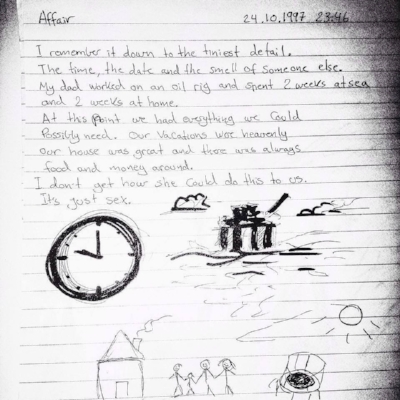 Affair 24.10.1997 23:46
I remember it down to the tiniest detail.
The time, the date and the smell of someone else.
My dad worked on an oil rig and spent 2 weeks at sea
and 2 weeks at home.
At this point we had everything we could
Possibly need. Our vacations were heavenly
our house was great and there was always
food and money around.
I don't get how she could do this to us.
It's, just sex.